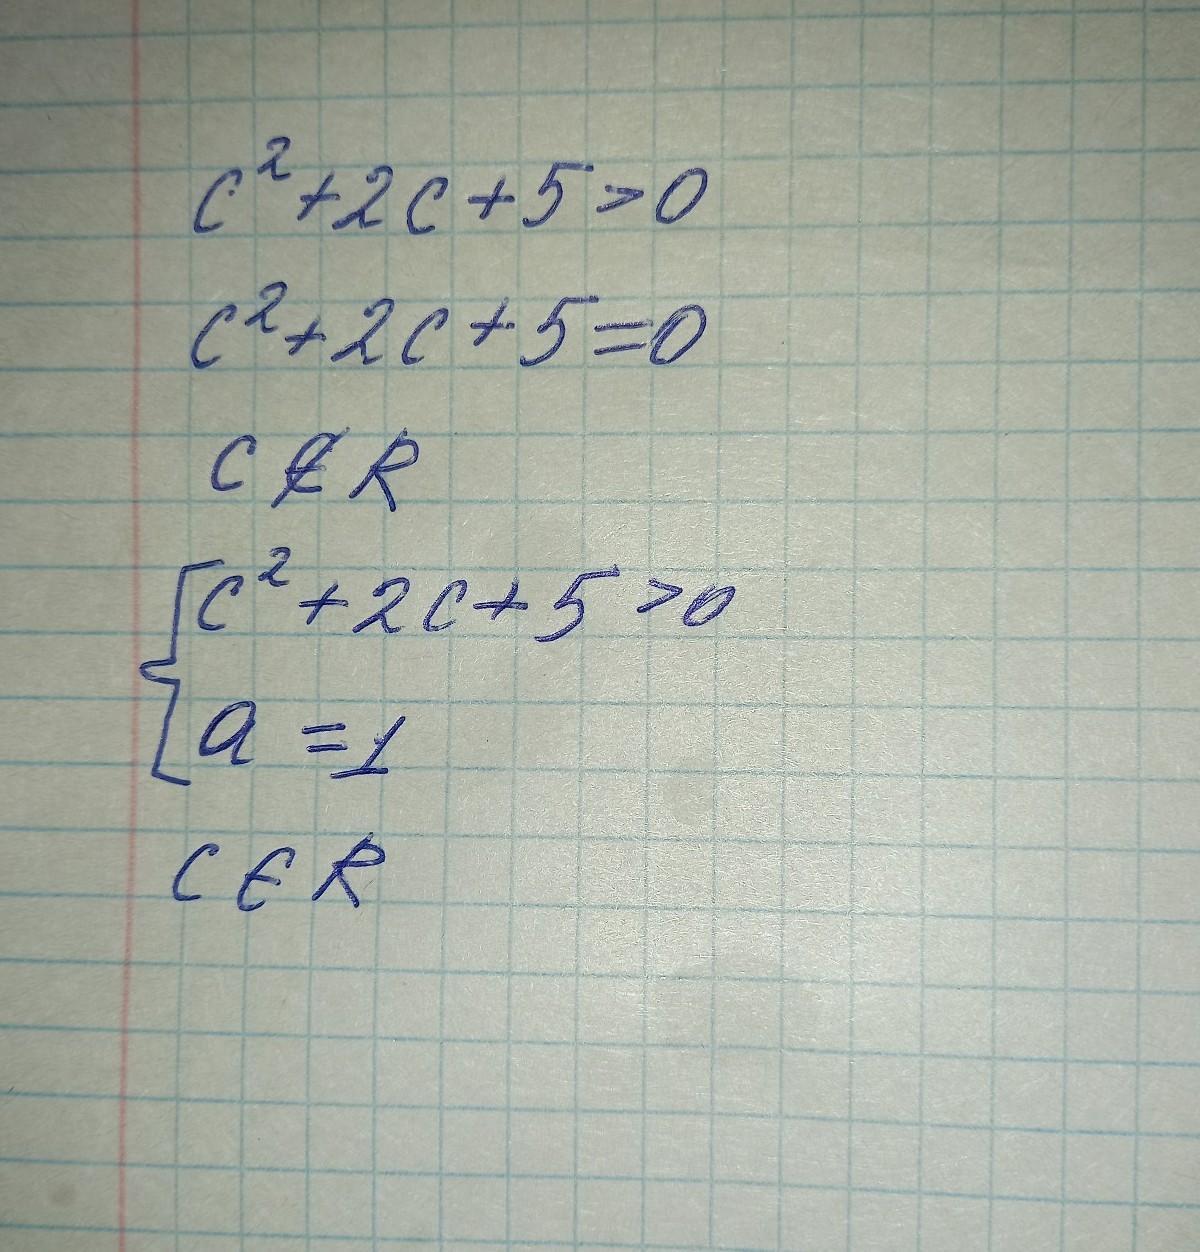 c²+2c+5>0
c²+2c+5=0
c∉R
{c²+2c+5>0
a=1
c∈R